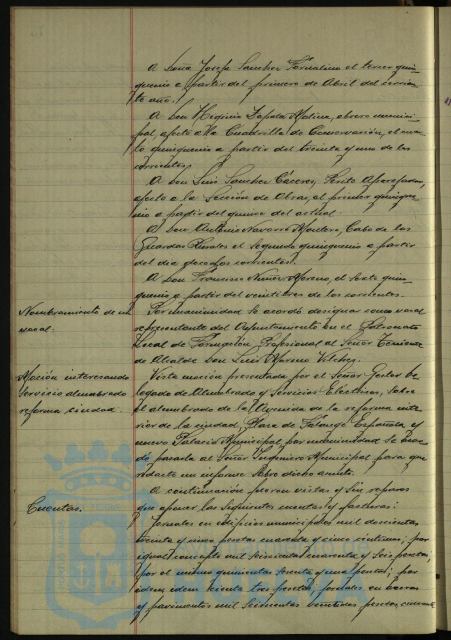 A Doña Josefa Sanchez el tercer quin-
quenio a partir del primero de Abril del corrien-
te año.
A Don Higinio Zapata Molina, obrero munici-
pal afecto a la Cuadrilla de Conservación, el
quinquenio a partir del treinta y uno de los
corrientes.
A Don Luis Sanchez Cáceres, Perito Aparejador,
afecto a la Sección de Obras, el primer quinque-
nio a partir del quince del actual.
A Don Antonio Navarro Montero, Cabo de los
Guardas Rurales el segundo quinquenio a partir
del dia corrientes.
A Don Francisco Nuñez Moreno, el sexto quin-
quenio a partir del veintitres de los corrientes.
Nombramiento de un
vocal.
Por unanimidad se acordó designar como vocal
representante del Ayuntamiento en el Patronato
Local de Formación Profesional al Señor Teniente
de Alcalde Don Luis Moreno
Moción interesando
servicio alumbrado
reforma ciudad.
Vista moción presentada por el Señor Gestor De-
legado de Alumbrado y Servicios Electricos, sobre
el alumbrado de la Avenida de la reforma inte-
rior de la ciudad, Plaza de Falange Española y
nuevo Palacio Municipal, por unanimidad se acor-
dó pasarla al Señor Ingeniero Municipal para que
redacte un informe sobre dicho asunto.
Cuentas.
A continuación fueron vistas y sin reparos
que oponer las siguientes cuentas y facturas:
Jornales en edificios municipales mil doscientas
treinta y cinco pesetas cuarenta y cinco centimos; por
igual concepto mil cuarenta y seis pesetas;
por el mismo quinientas treinta y una pesetas; por
idem idem treinta y tres pesetas; jornales en
y pavimentos mil seiscientas veintidos pesetas